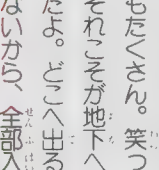 もたくさん。笑っ
それこそが地下へ
たよ。どこへ出る
ないから、全部入